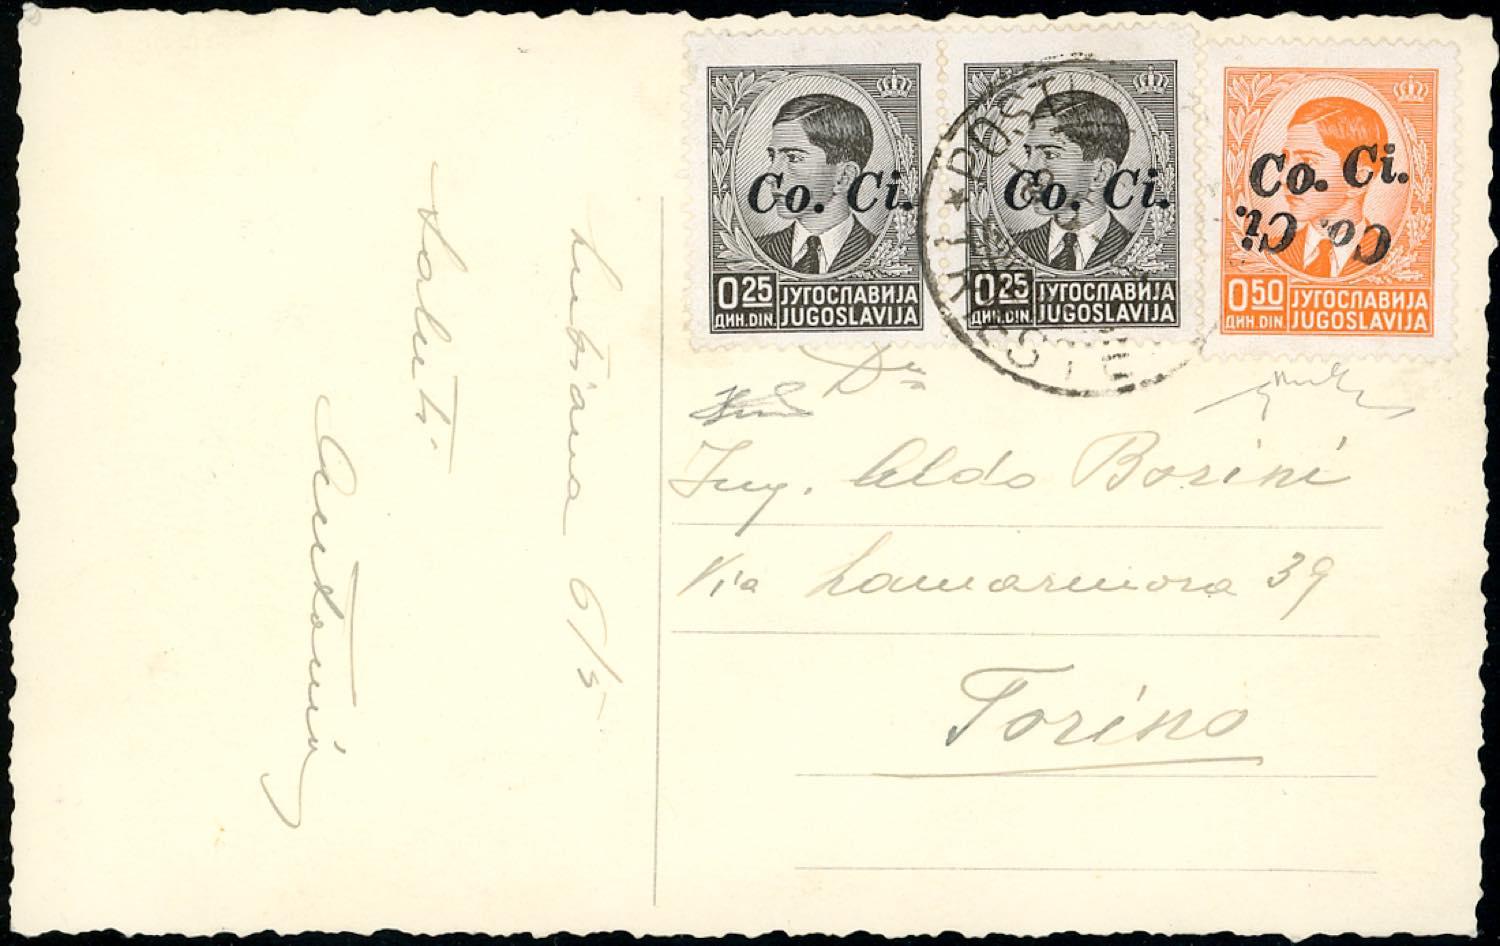 Lubiana 6/5
Saluti
Co. Ci.
0.25
ДИН. DIN.
ЈУГОСЛАВИЈА
JUGOSLAVIJA
Co. Ci.
0.25
ДИН. DIN.
ЈУГОСЛАВИЈА
JUGOSLAVIJA
Co. Ci.
Co. Ci.
0.50
ДИН. DIN.
ЈУГОСЛАВИЈА
JUGOSLAVIJA
Ing. Aldo Borini
Via Lamarmora 39
Torino